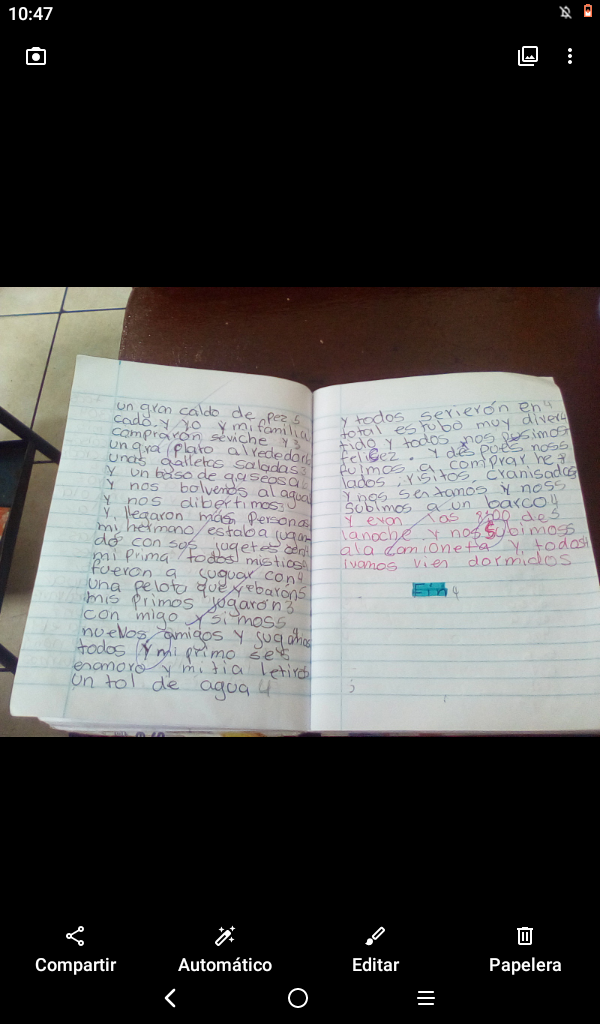 10:47
un gran caldo de pez s
cado y yo y mi familia
compraron seviche y 3
un gra plato alrededor
unas galletas saladas
y un baso de gaseosa
y nos bolvemos al agua
y nos dibertimos
y llegaron más personas
mi hermano estaba jugan
do con sos jugetes
mi prima todos mis tios
fueron a juguar con 4
una pelota que rebaron
mis primos jugaron 3
con migo y si mos s
nuevos amigos y jugamos
todos y mi primo se s
enamoro y mi tia le tiro
un tol de agua 4
y todos serieron en 4
total estubo muy diver
tido y todos nos posimos
felez. y des poes nos s
fuimos a comprar he
lados, risitos, cranisadas
y nos sentamos y nos s
subimos a un barco
y eran las 8:00 de s
la noche y nos subimos s
a la camioneta y todas
ivamos vien dormidos
Fin 4
Compartir
Automático
Editar
Papelera